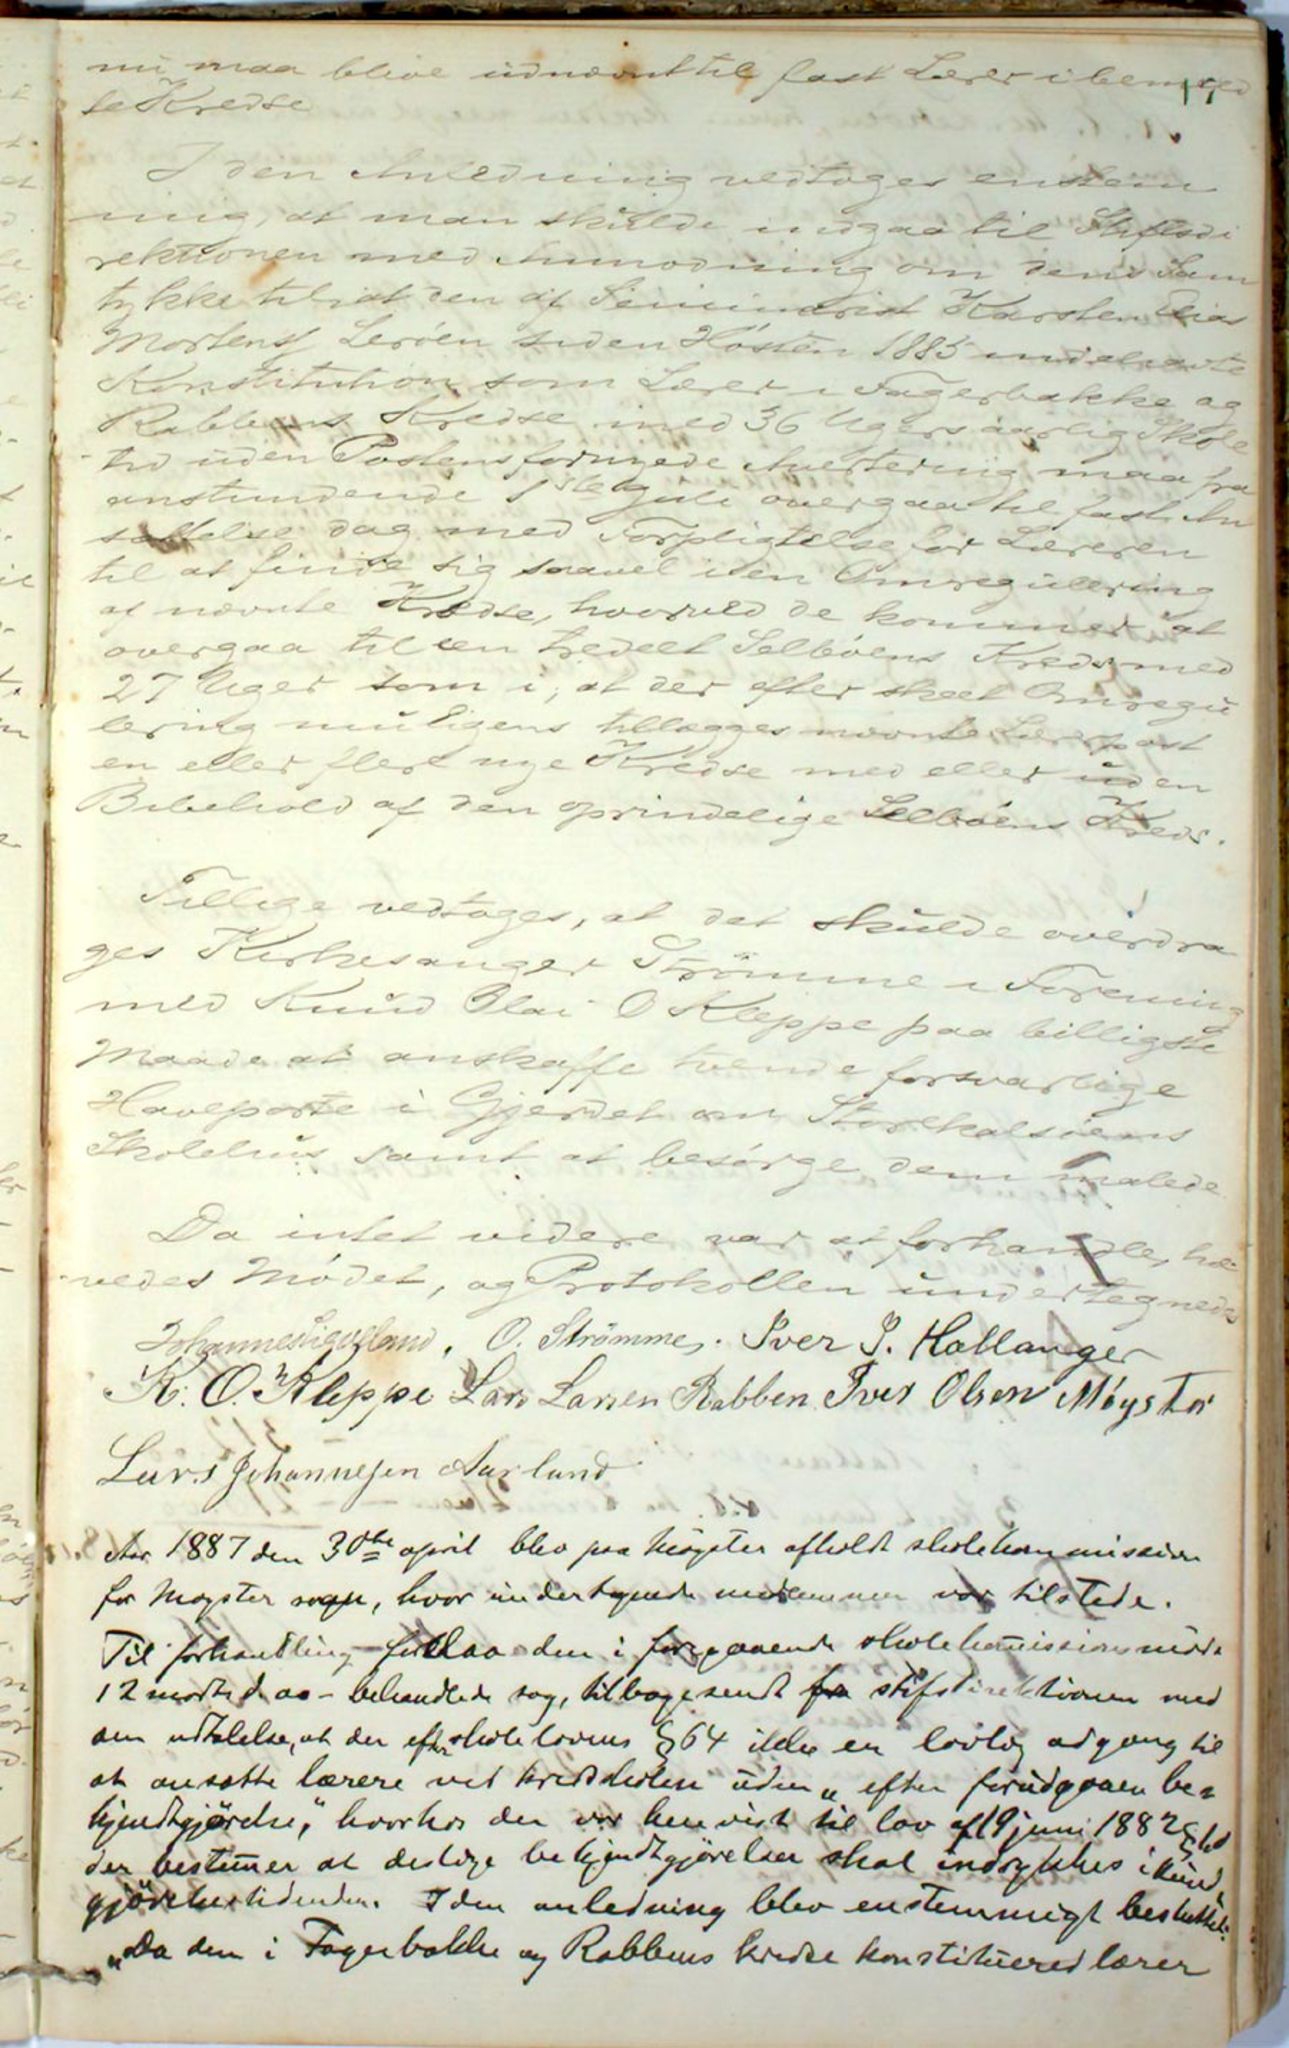 17
nu maa blive udnævnt til fast Lærer i bemeld
te Kredse
I den Anledning vedtoges enstem
mig, at man skulde indgaa til Stiftsdi
rektionen med Anmodning om dens Sam
tykke til at den af Seminarist Karsten Elias
Mortens Lerøen siden Høsten 1885 indehavte
Konstitution som Lærer i Fagerbakke og
Rabbens Kredse med 36 Ugers aarlig Skole
tid uden Postens fornyede Avertering maa fra
anstundende 1ste Juli overgaa til fast An
sættelse dog med Forpligtelse for Læreren
til at finde sig saavel i en Omregulering
af nævnte Kredse, hvorved de kommer at
overgaa til een tredelt Selbøens Kreds med
27 Uger som i, at der efter skeet Omregu
lering muligens tillægges nævnte Lærerpost
en eller flere nye Kredse med eller uden
Bibehold af den oprindelige Selbøens Kreds.
Tillige vedtoges, at det skulde overdra
ges Kirkesanger Strømme i Forening
med Knud Olai O Kleppe paa billigste
Maade at anskaffe tvende forsvarlige
Haveporte i Gjerdet om Storekalsøens
Skolehus samt at besørge dem malede
Da intet videre var at forhandle, hæ
vedes Mødet, og Protokollen undertegnedes
Johannes Sigvolland, O. Strömme, Iver J. Hallanger
K. O. Kleppe Lars Larsen Rabben Iver Olsen Møgster
Lars Johannesen Aurland
Aar 1887 den 30te april blev paa Møgster afholdt skolekommission
for Møgster sogn, hvor undertegnede medlemmer var tilstede.
Til forhandling forelaa den i foregaaende skolekomissionsmøde
12 marts d. aa - behandlede sag, tilbagesendt fra stifsdirektionen med
den udtalelse, at der efter skolelovens § 64 ikke er lovlig adgang til
at ansætte lærere ved kredsskolen uden „efter forudgaaen be-
kjendtgjørelse," hvorhos der var henvist til lov af 19 juni 1882
der bestemer at deslige bekjendtgjørelser skal indrykkes i kund-
gjørelsestidenden. I den anledning blev enstemmigt besluttet:
„Da den i Fagerbakke og Rabbens kredse konstituered lærer